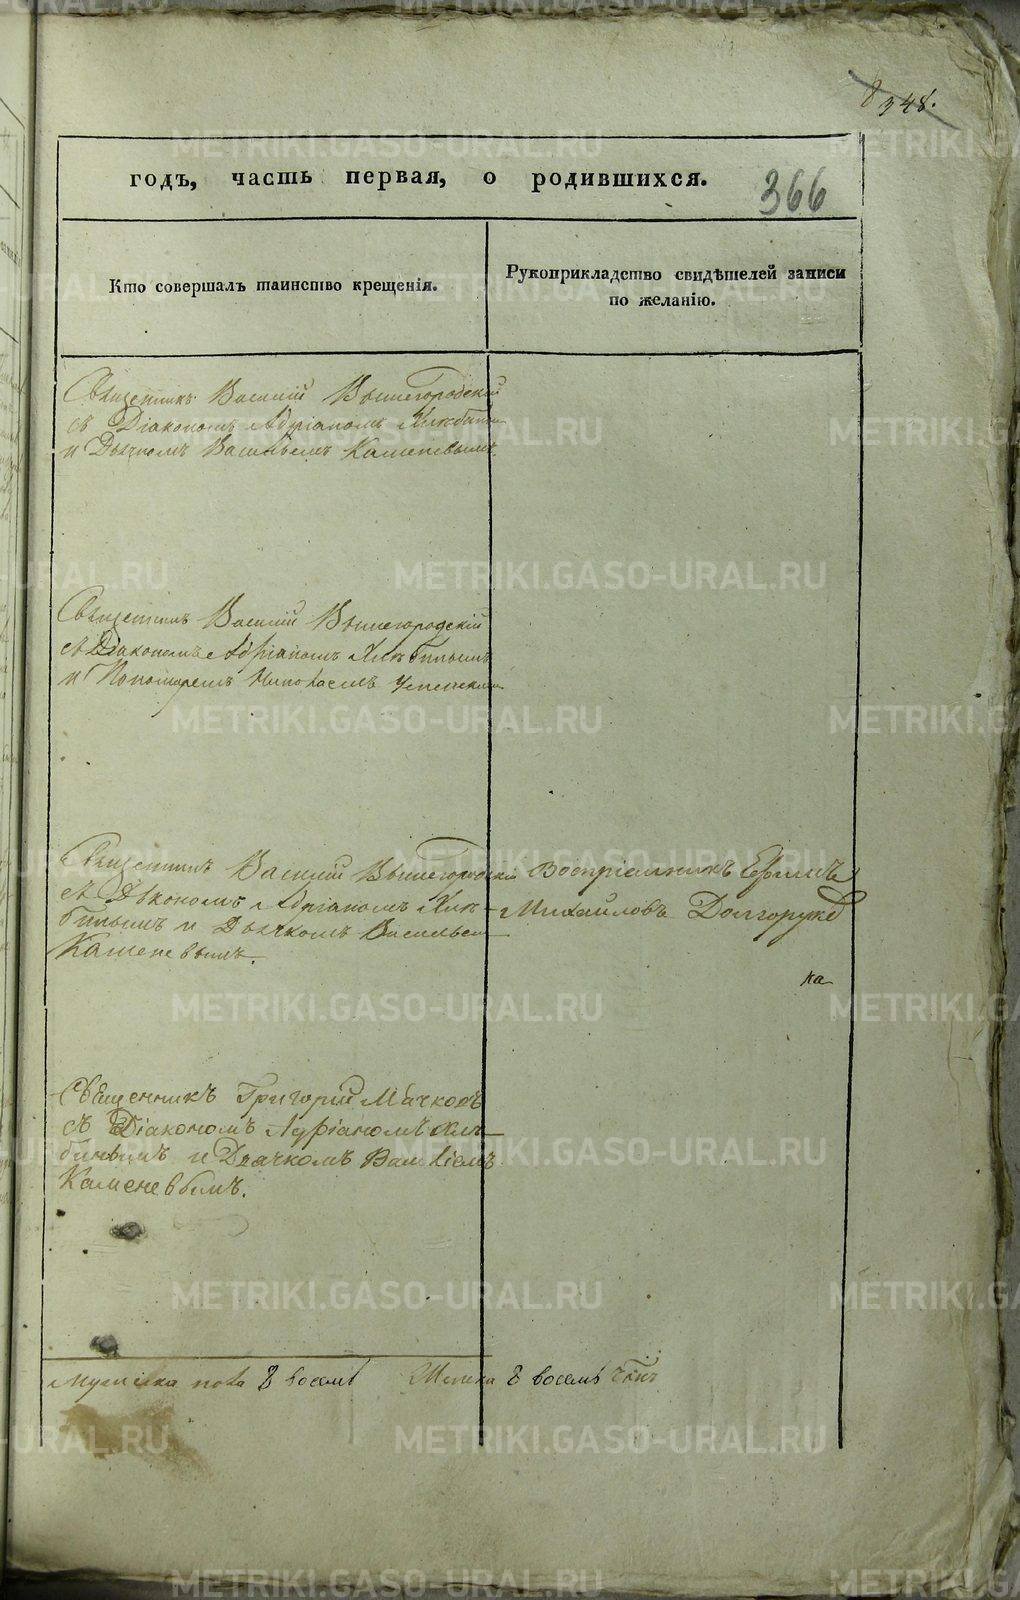 8 348.
годъ, часть первая, о родившихся. 366
Кто совершалъ таинство крещенія.
Рукоприкладство свидѣтелей записи
по желанію.
Священникъ Василій Вышегородскій
съ Діакономъ Адріаномъ
и Дьячкомъ Васильемъ Каменевымъ
Священникъ Василій Вышегородскій
съ Діакономъ Адріаномъ
и Пономаремъ Николаемъ
Священникъ Василій Вышегородскій
съ Дьякономъ Адріаномъ Хлѣ-
бинымъ и Дьячкомъ Васильемъ
Каменевымъ.
Воспріемникъ Ефимъ
Михайловъ Долгоруко
ва
Священникъ Григорій Мачковъ
съ Діакономъ Адріаномъ Хлѣ-
бинымъ и Дьячкомъ Васильемъ
Каменевымъ.
Мужеска пола 8 восемь Женска 8 восемь
METRIKI.GASO-URAL.RU